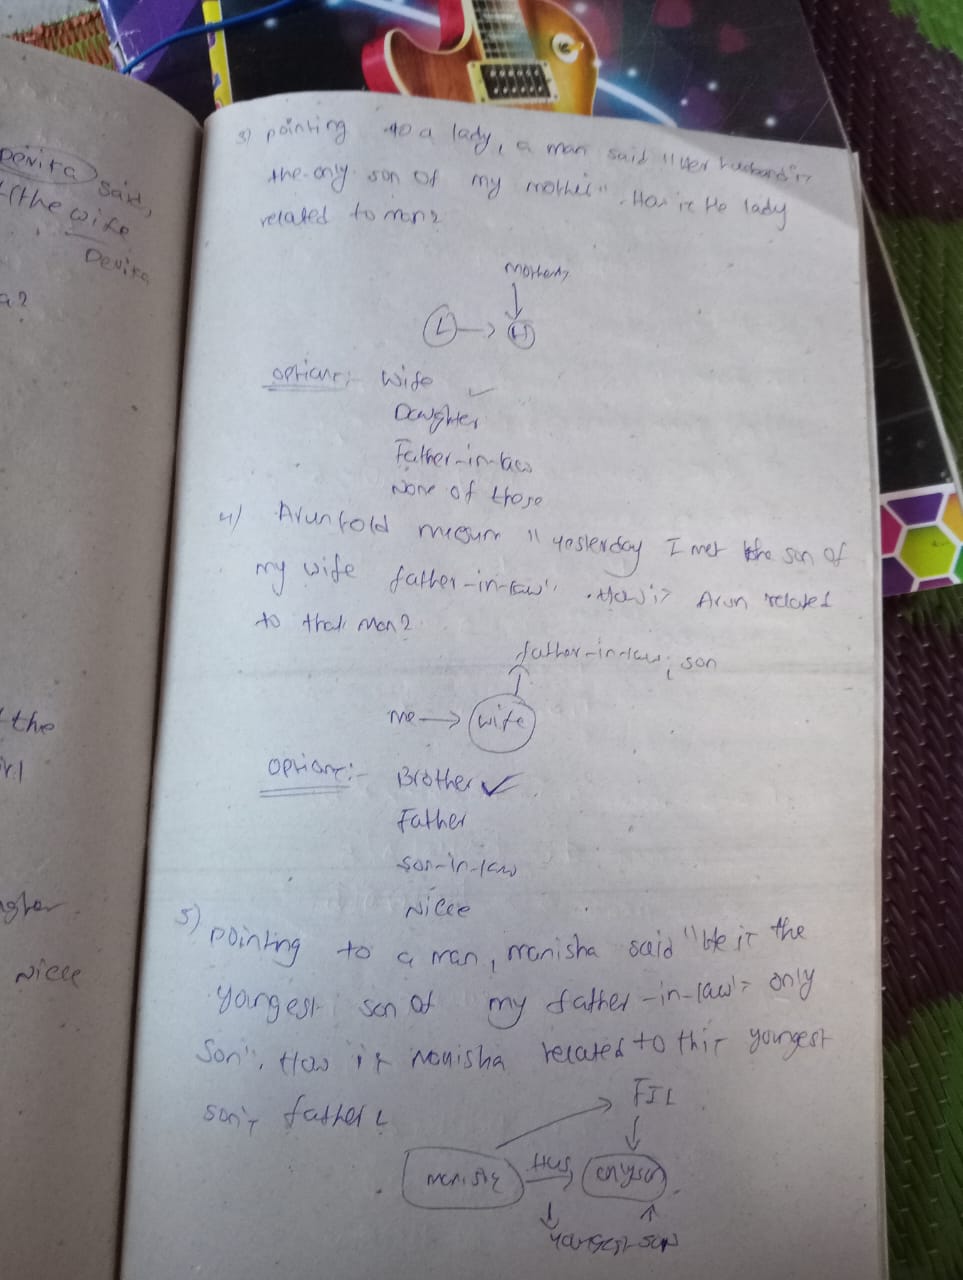 Devika said,
the wife
Devika
a?
the
Niece
3) pointing to a lady, a man said "Her husband is
the only son of my mother". How is the lady
related to man?
mother,
L → H
options:- Wife ✓
Daughter
Father-in-law
None of those
4) Arun told mugum "yesterday I met the son of
my wife father-in-law". How is Arun related
to that man?
father-in-law; son
me → wife
options:- Brother ✓
Father
son-in-law
Niece
5) pointing to a man, manisha said "He is the
yongest son of my father-in-law's only
son". How is manisha related to this yongest
son's father?
FIL
manisha Hus onlyson
yongest son